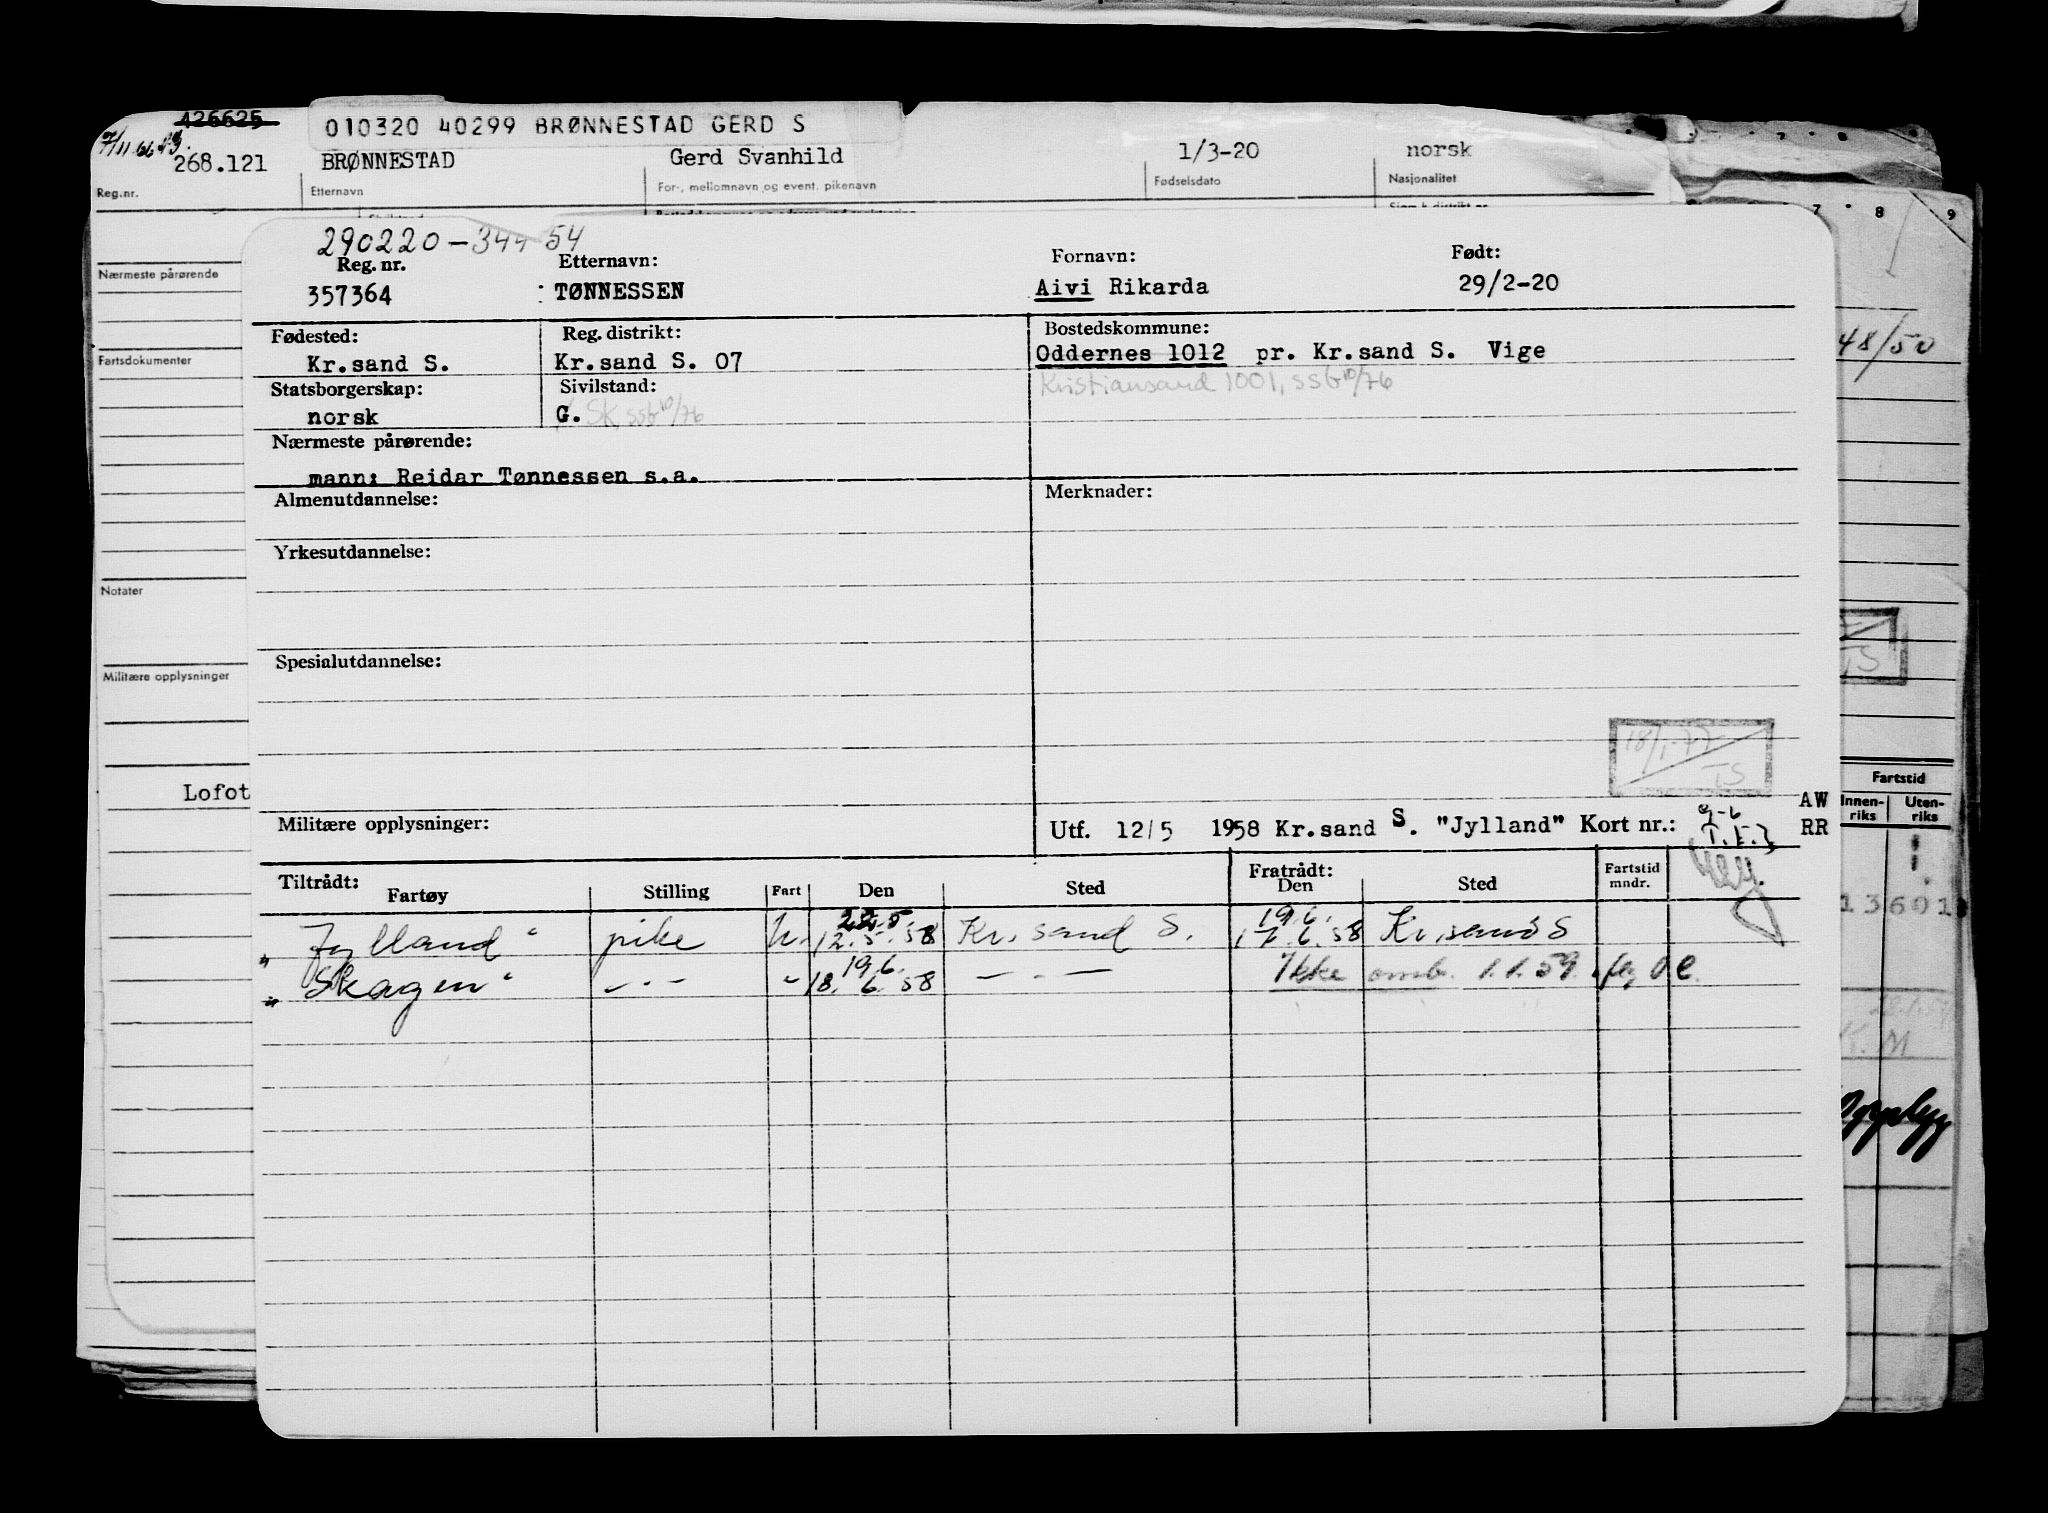 426625
010320 40299 BRØNNESTAD GERD S
7/11 66
268.121 BRØNNESTAD Gerd Svanhild 1/3-20 norsk
Reg.nr. Etternavn For-, mellomnavn og event. pikenavn Fødselsdato Nasjonalitet
7 8 9
Nærmeste pårørende
Fartsdokumenter
Notater
Militære opplysninger
Lofot
48/50
Fartstid
Innen-riks Uten-riks
13601
K. M
290220-344 54
Reg. nr. Etternavn: Fornavn: Født:
357364 TØNNESSEN Aivi Rikarda 29/2-20
Fødested: Reg. distrikt: Bostedskommune:
Kr.sand S. Kr.sand S. 07 Oddernes 1012 pr. Kr.sand S. Vige
Statsborgerskap: Sivilstand: Kristiansand 1001, ssb 10/76
norsk G. Sk, ssb 10/76
Nærmeste pårørende:
mann: Reidar Tønnessen s.a.
Almenutdannelse: Merknader:
Yrkesutdannelse:
Spesialutdannelse:
18/1-77
TS
Militære opplysninger: Utf. 12/5 1958 Kr.sand S. "Jylland" Kort nr.:
AW
RR
Tiltrådt: Fratrådt:
Fartøy Stilling Fart Den Sted Den Sted Fartstid mndr.
22.5. 19.6.
"Jylland" pike h. 12.5.58 Kr.sand S. 17.6.58 Kr.sand S
19.6.
"Skagen" -"- " 18.6.58 -"- Ikke omb. 1.1.59.